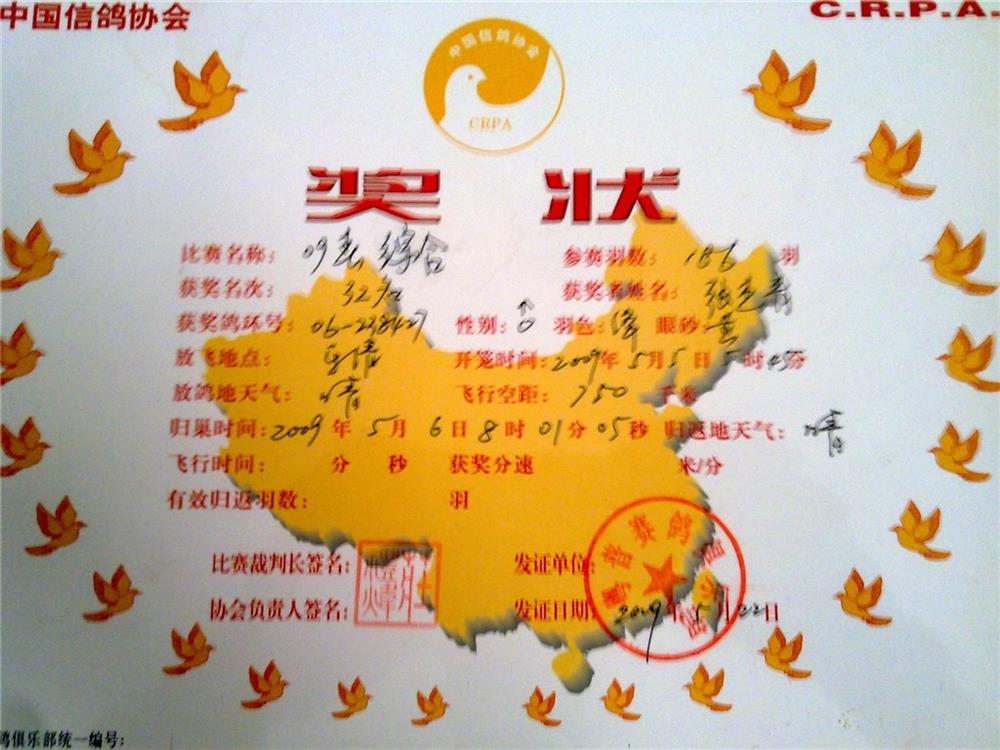 中国信鸽协会
C.R.P.A.
中国信鸽协会
CRPA
奖状
比赛名称：09春 综合 参赛羽数：186 羽
获奖名次：32名 获奖者姓名：张
获奖鸽环号：06-238427 性别：♂ 羽色：绛 眼砂：黄
放飞地点： 开笼时间：2009年5月5日5时45分
放鸽地天气：晴 飞行空距：750 千米
归巢时间：2009 年 5月 6日8时01分05秒 归返地天气：晴
飞行时间： 分 秒 获奖分速 米/分
有效归返羽数： 羽
比赛裁判长签名： 发证单位：
协会负责人签名： 发证日期：2009年5月22日
鸽俱乐部统一编号：